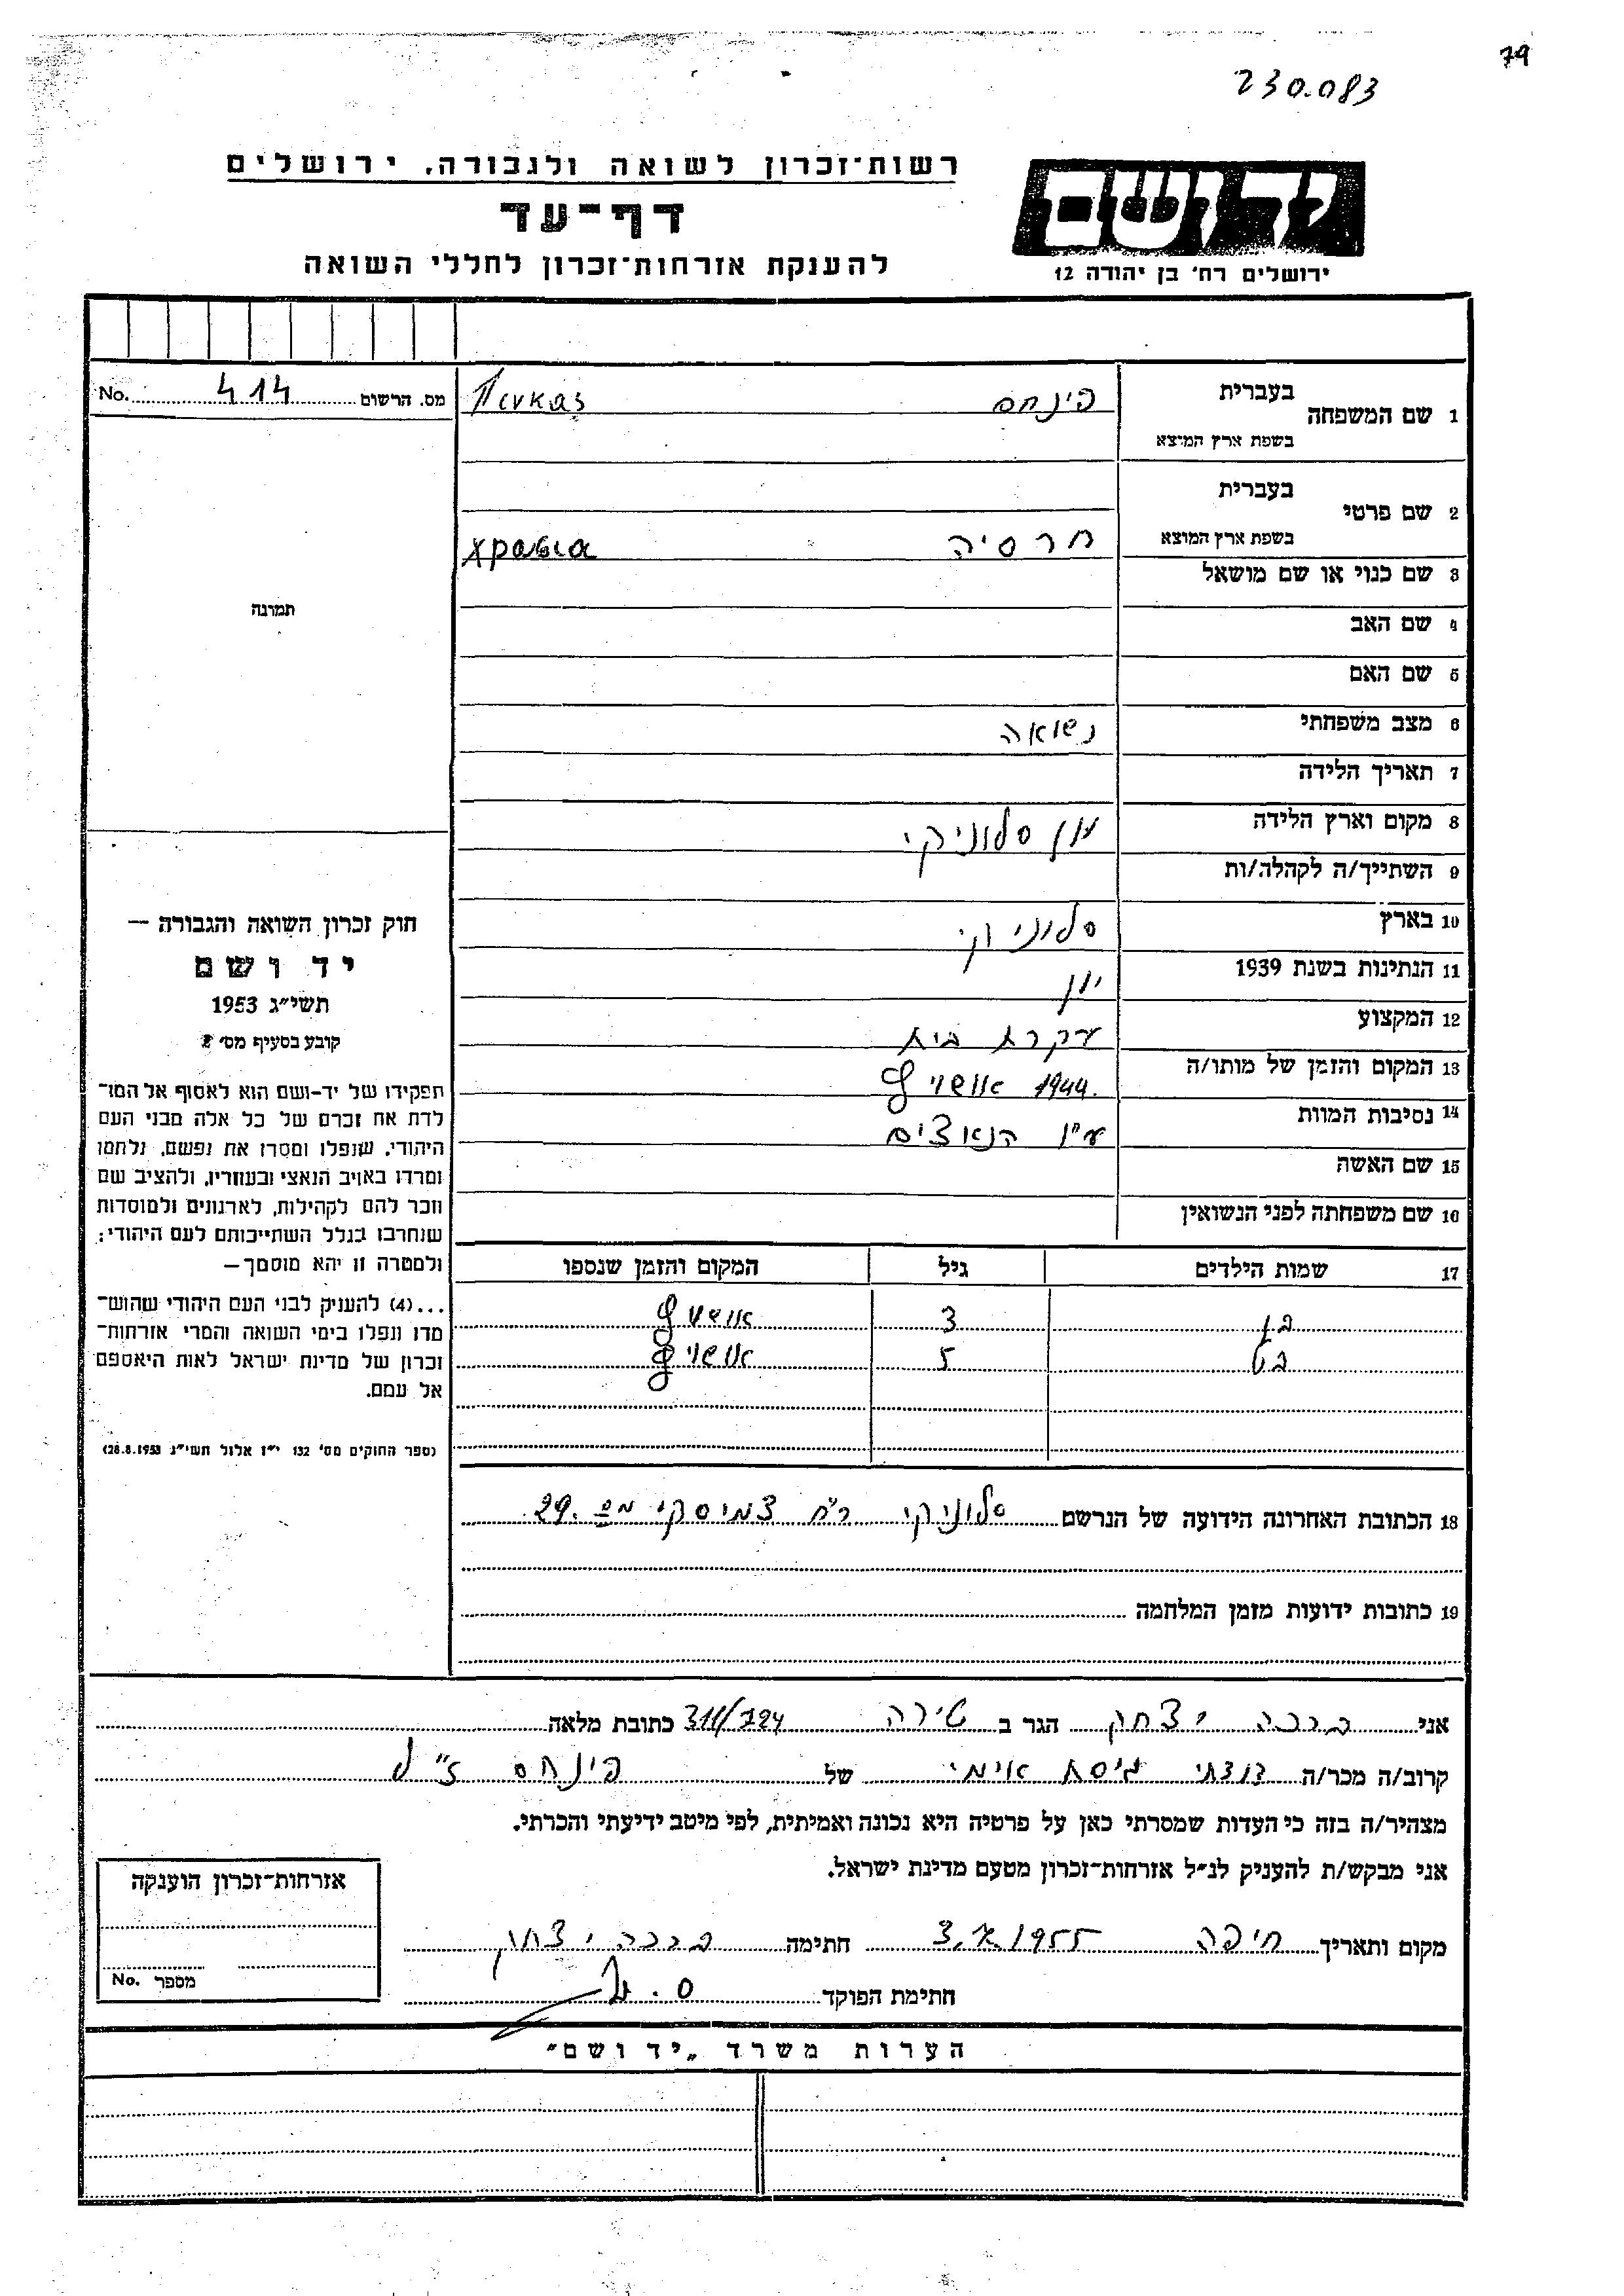 79
230.083
רשות־זכרון לשואה ולגבורה, ירושלים
דף־עד
להענקת אזרחות־זכרון לחללי השואה
יד ושם
ירושלים רח' בן יהודה 12
מס. הרשום 414 No.
1 שם המשפחה
בעברית פינחס
בשפת ארץ המוצא
2 שם פרטי
בעברית
בשפת ארץ המוצא חרסיה
3 שם כנוי או שם מושאל
4 שם האב
5 שם האם
6 מצב משפחתי נשואה
7 תאריך הלידה
8 מקום וארץ הלידה יון סלוניקי
9 השתייך/ה לקהלה/ות
10 בארץ סלוניקי
11 הנתינות בשנת 1939 יון
12 המקצוע עקרת בית
13 המקום והזמן של מותו/ה 1944. אושויץ
14 נסיבות המוות ע"י הנאצים
15 שם האשה
16 שם משפחתה לפני הנשואין
17 שמות הילדים גיל המקום והזמן שנספו
בן 3 אושויץ
בת 5 אושויץ
18 הכתובת האחרונה הידועה של הנרשם סלוניקי רח צמיסקי מס 29.
19 כתובות ידועות מזמן המלחמה
תמונה
חוק זכרון השואה והגבורה —
יד ושם
תשי״ג 1953
קובע בסעיף מס' 2
תפקידו של יד-ושם הוא לאסוף אל המו־
לדת את זכרם של כל אלה מבני העם
היהודי, שנפלו ומסרו את נפשם, נלחמו
ומרדו באויב הנאצי ובעוזריו, ולהציב שם
וזכר להם לקהילות, לארגונים ולמוסדות
שנחרבו בגלל השתייכותם לעם היהודי:
ולמטרה זו יהא מוסמך—
...(4) להעניק לבני העם היהודי שהוש־
מדו ונפלו בימי השואה והמרי אזרחות־
זכרון של מדינת ישראל לאות היאספם
אל עמם.
(ספר החוקים מס' 132 י״ז אלול תשי״ג 28.8.1953)
אני ברכה יצחק הגר ב טירה 311/724 כתובת מלאה
קרוב/ה מכר/ה דודתי גיסת אימי של פינחס ז"ל
מצהיר/ה בזה כי העדות שמסרתי כאן על פרטיה היא נכונה ואמיתית, לפי מיטב ידיעתי והכרתי.
אני מבקש/ת להעניק לנ״ל אזרחות־זכרון מטעם מדינת ישראל.
מקום ותאריך חיפה 1955 חתימה ברכה יצחק
חתימת הפוקד
אזרחות־זכרון הוענקה
מספר No.
הערות משרד „יד ושם״